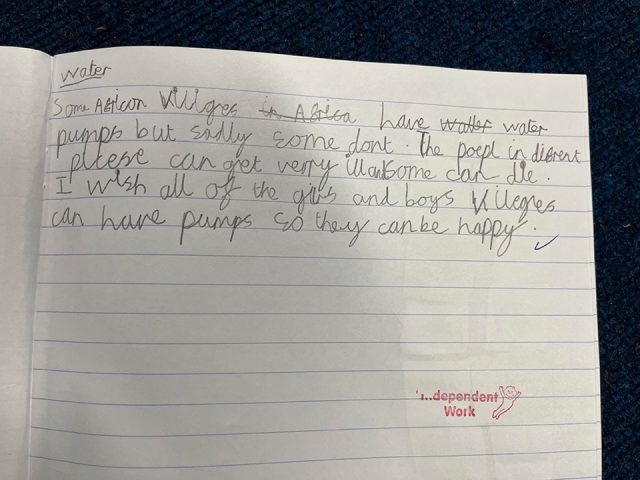 Water
Some African Villges in Africa have watter water
pumps but sadly some dont. The poepl in diferent
pltese can get verry ill and some can die.
I wish all of the girls and boys Villegres
can have pumps so they can be happy.
Independent
Work